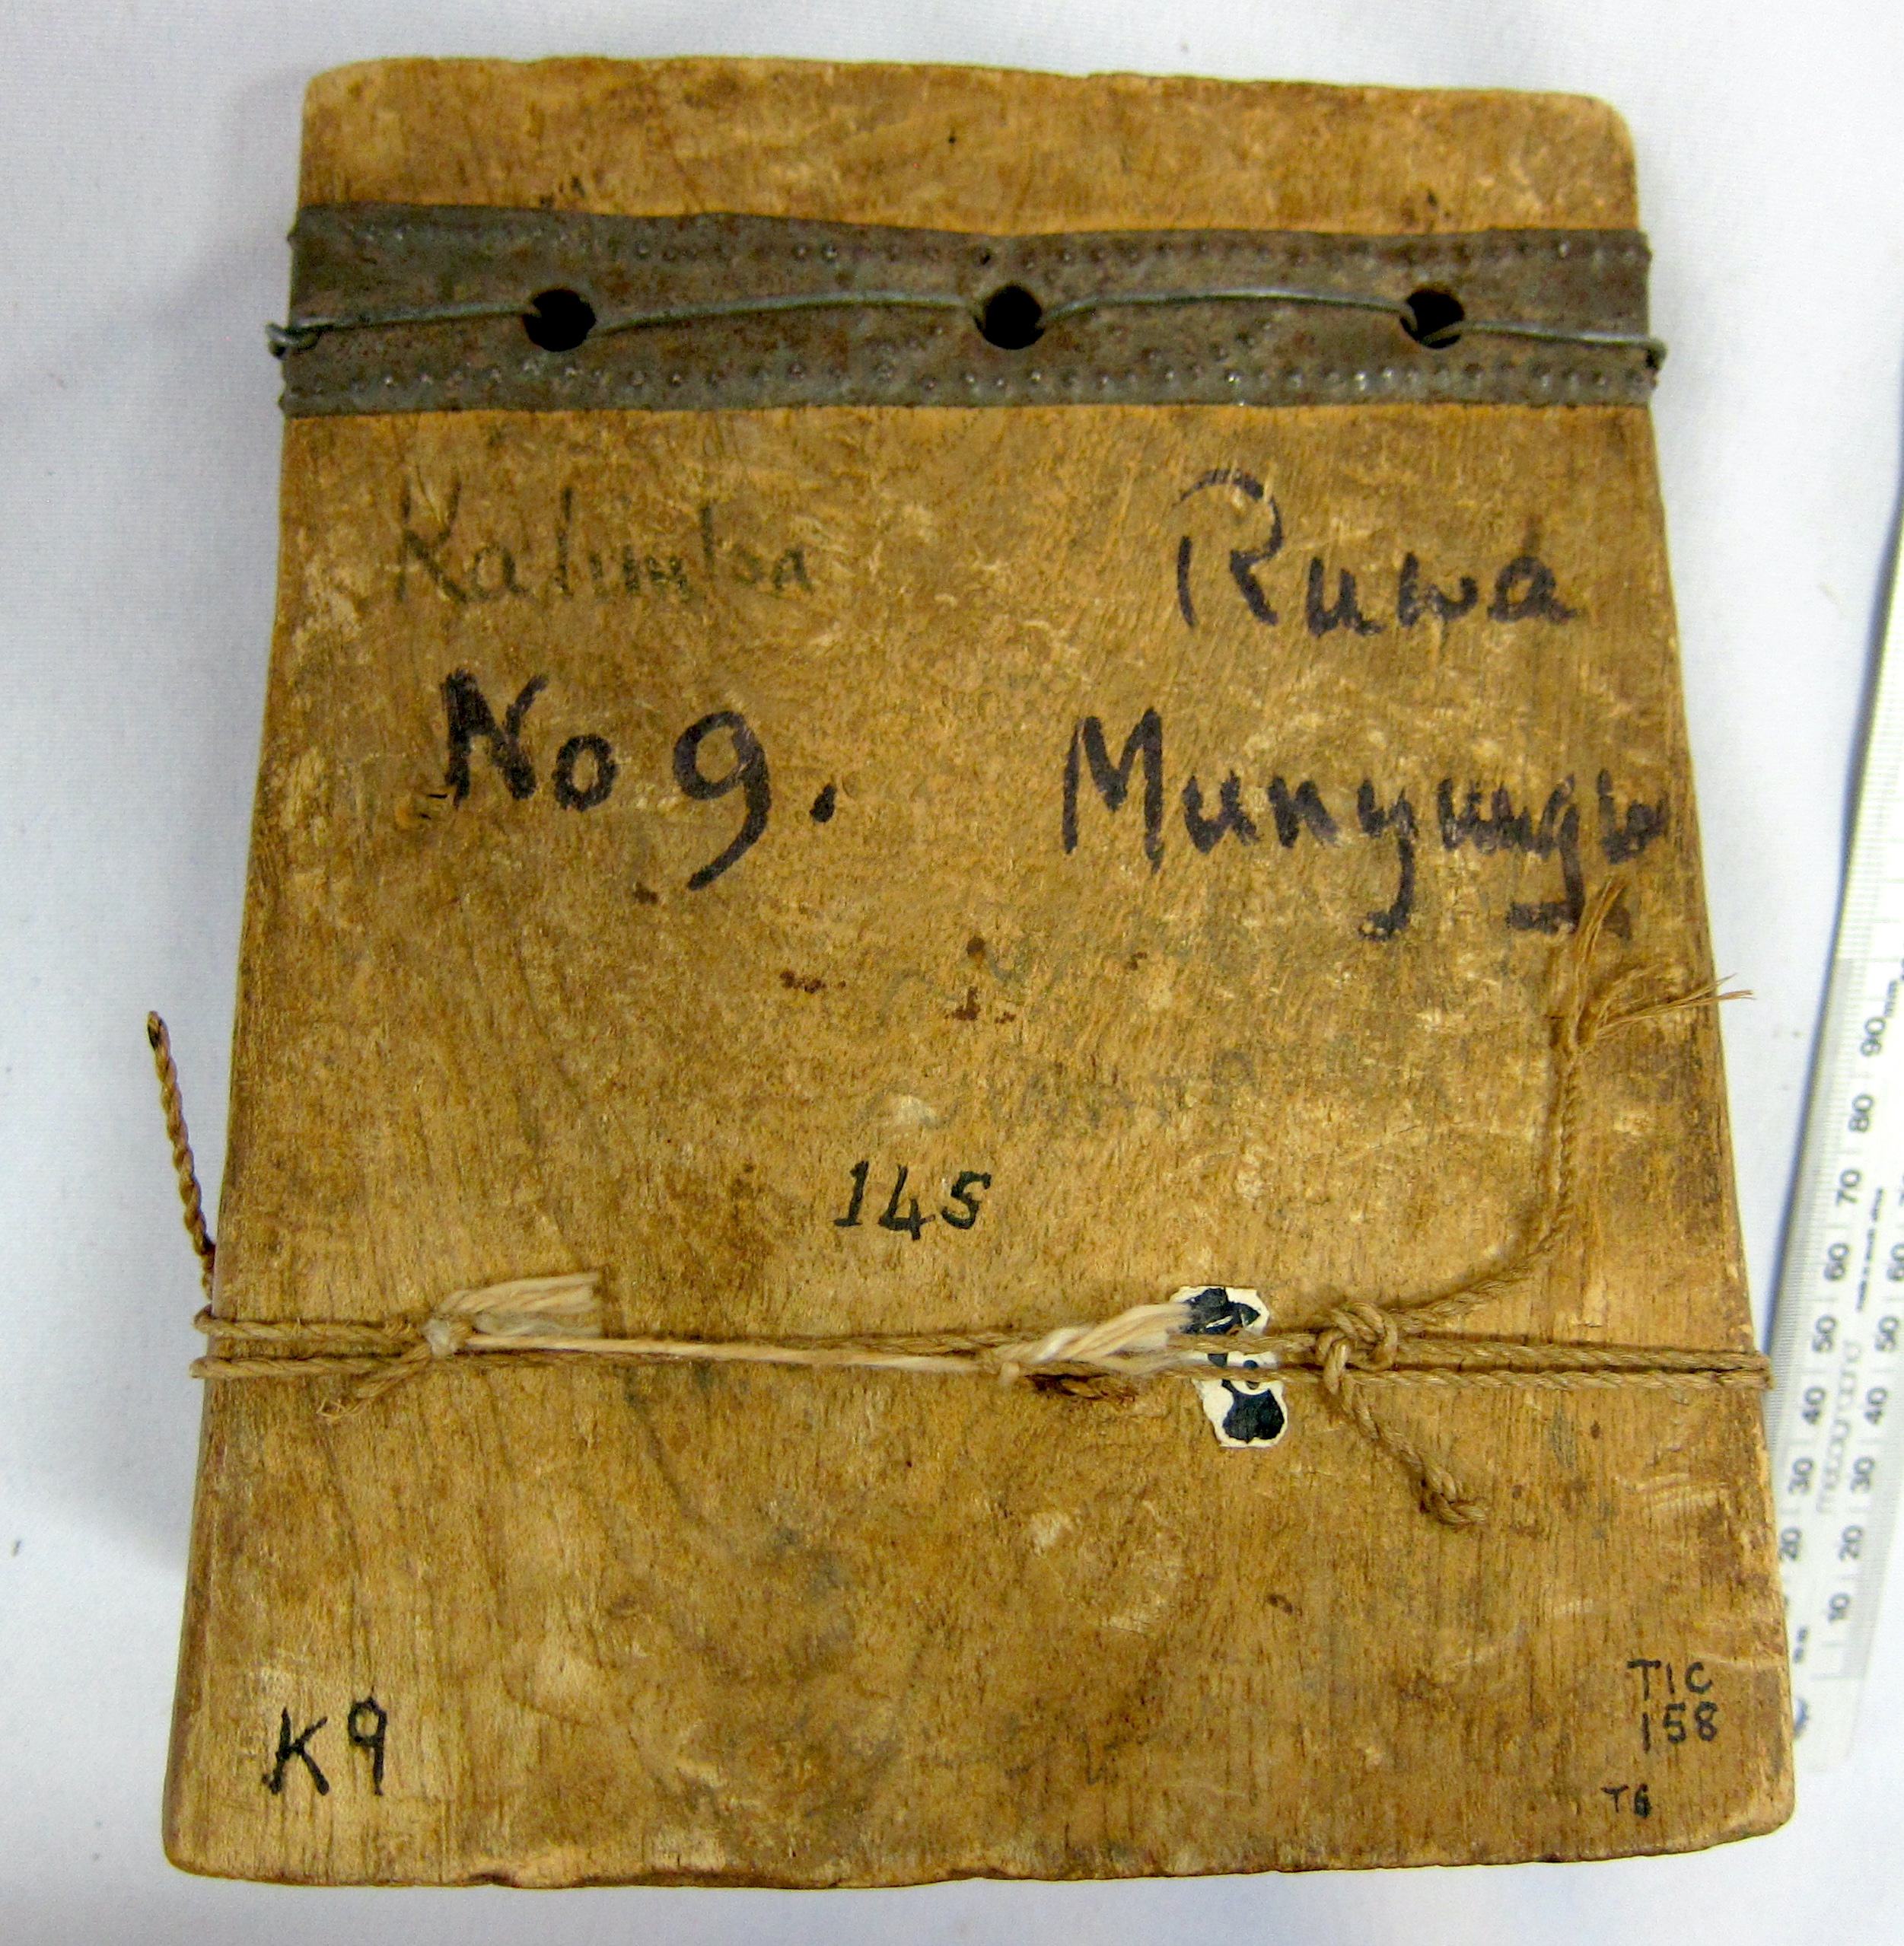 Kalimba
Ruwa
No 9.
Munyungw
145
K9
TIC
158
T6
10 20 30 40 50 60 70 80 90
10 20 30 40 50 60